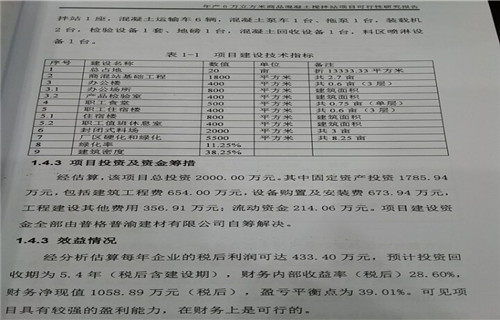 年产6万立方米商品混凝土搅拌站项目可行性研究报告
拌站1座，混凝土运输车6辆，混凝土泵车1台、拖泵1台，装载机
2台，检验设备1套、地磅1台，混凝土回收设备1台，料区喷淋设
备1台。
表1-1 项目建设技术指标
序号 建设名称 数值 单位 备注
1 总占地 20 亩 折13333.33平方米
2 商混站基础工程 1800 平方米 共2.7亩
3 办公楼 400 平方米 共0.6亩（3层）
3.1 办公场所 800 平方米 建筑面积
3.2 产品检验室 400 平方米 建筑面积
4 职工食堂 500 平方米 共0.75亩（单层）
5 职工住宿楼 400 平方米 共0.6亩（3层）
5.1 住宿楼 800 平方米 建筑面积
5.2 职工值班休息室 400 平方米 建筑面积
6 封闭式料场 2000 平方米 共3亩
7 厂区硬化和绿化 5500 平方米 共8.25亩
8 绿化率 11.25%
9 建筑密度 38.25%
1.4.3 项目投资及资金筹措
经估算，该项目总投资2000.00万元。其中固定资产投资1785.94
万元，包括建筑工程费654.00万元，设备购置及安装费673.94万元，
工程建设其他费用356.91万元；流动资金214.06万元。项目建设资
金全部由普格普渝建材有限公司自筹解决。
1.4.3 效益情况
经分析估算每年企业的税后利润可达433.40万元，预计投资回
收期为5.4年（税后含建设期），财务内部收益率（税后）28.60%，
财务净现值1058.89万元（税后），盈亏平衡点为39.01%。可见项
目具有较强的盈利能力，在财务上是可行的。